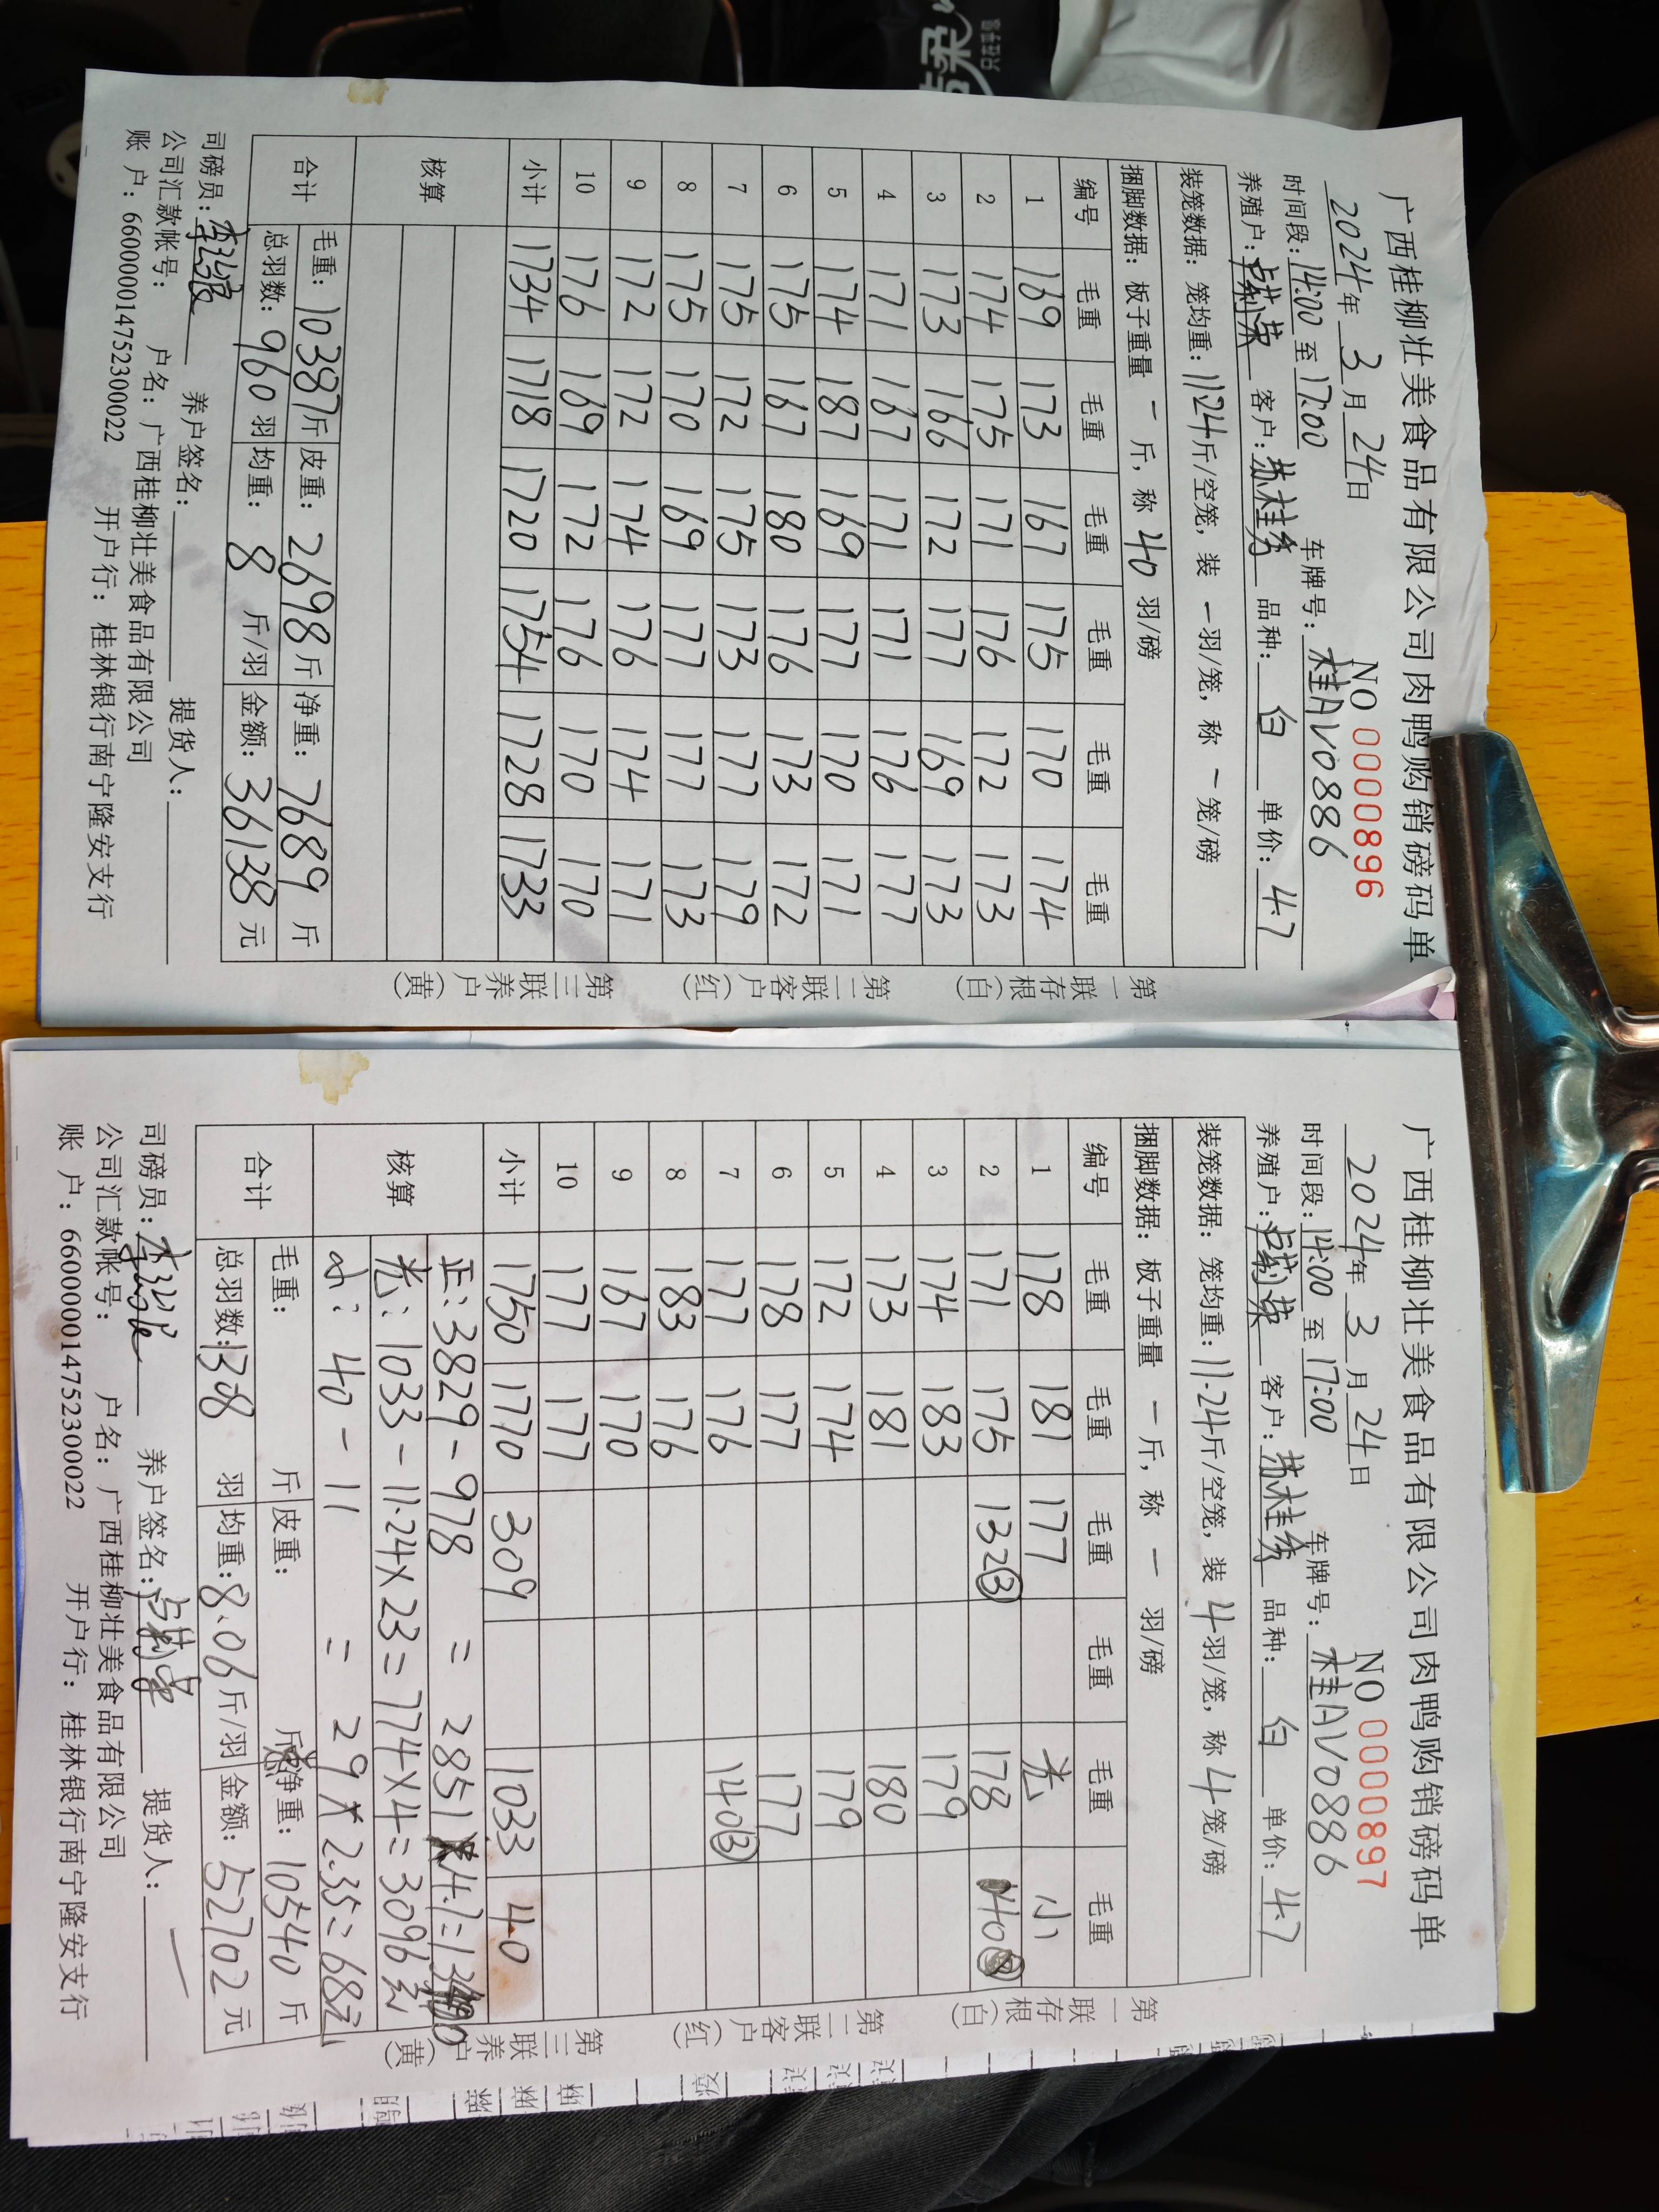 洁柔
只在乎你
广西桂柳壮美食品有限公司肉鸭购销磅码单
NO 0000896
2024年 3 月 24日
时间段:14:00 至 17:00 车牌号:桂AV0886
养殖户: 客户: 品种: 白 单价: 4.7
装笼数据: 笼均重:11.24斤/空笼, 装 一 羽/笼, 称 一 笼/磅
捆脚数据: 板子重量 一 斤, 称 40 羽/磅
编号 毛重 毛重 毛重 毛重 毛重 毛重
1 169 173 167 175 170 174
2 174 175 171 176 172 173
3 173 166 172 177 169 173
4 171 167 171 171 176 177
5 174 187 169 177 170 171
6 175 167 180 176 173 172
7 175 172 175 173 177 179
8 175 170 169 177 177 173
9 172 172 174 176 174 171
10 176 169 172 176 170 170
小计 1734 1718 1720 1754 1728 1733
核算
合计 毛重: 10387斤 皮重: 2698斤 净重: 7689 斤
总羽数: 960 羽 均重: 8 斤/羽 金额: 36138 元
司磅员: 养户签名: 提货人:
公司汇款帐号: 户名: 广西桂柳壮美食品有限公司
账 户: 660000014752300022 开户行: 桂林银行南宁隆安支行
第一联存根(白) 第二联客户(红) 第三联养户(黄)
广西桂柳壮美食品有限公司肉鸭购销磅码单
NO 0000897
2024年 3 月 24日
时间段:14:00 至 17:00 车牌号:桂AV0886
养殖户: 客户: 品种: 白 单价: 4.7
装笼数据: 笼均重:11.24斤/空笼, 装 4 羽/笼, 称 4 笼/磅
捆脚数据: 板子重量 一 斤, 称 一 羽/磅
编号 毛重 毛重 毛重 毛重 毛重 毛重
1 178 181 177 光 小
2 171 175 132③ 178 40
3 174 183 179
4 173 181 180
5 172 174 179
6 178 177 177
7 177 176 140③
8 183 176
9 167 170
10 177 177
小计 1750 1770 309 1033 40
核算 正: 3829-978 = 2851×4.7=
光: 1033-11.24×23=774×4=3096元
小: 40-11 = 29×2.35=68元
合计 毛重: 斤 皮重: 斤 净重: 10540 斤
总羽数:1308 羽 均重:8.06斤/羽 金额: 52702 元
司磅员: 养户签名: 提货人:
公司汇款帐号: 户名: 广西桂柳壮美食品有限公司
账 户: 660000014752300022 开户行: 桂林银行南宁隆安支行
第一联存根(白) 第二联客户(红) 第三联养户(黄)